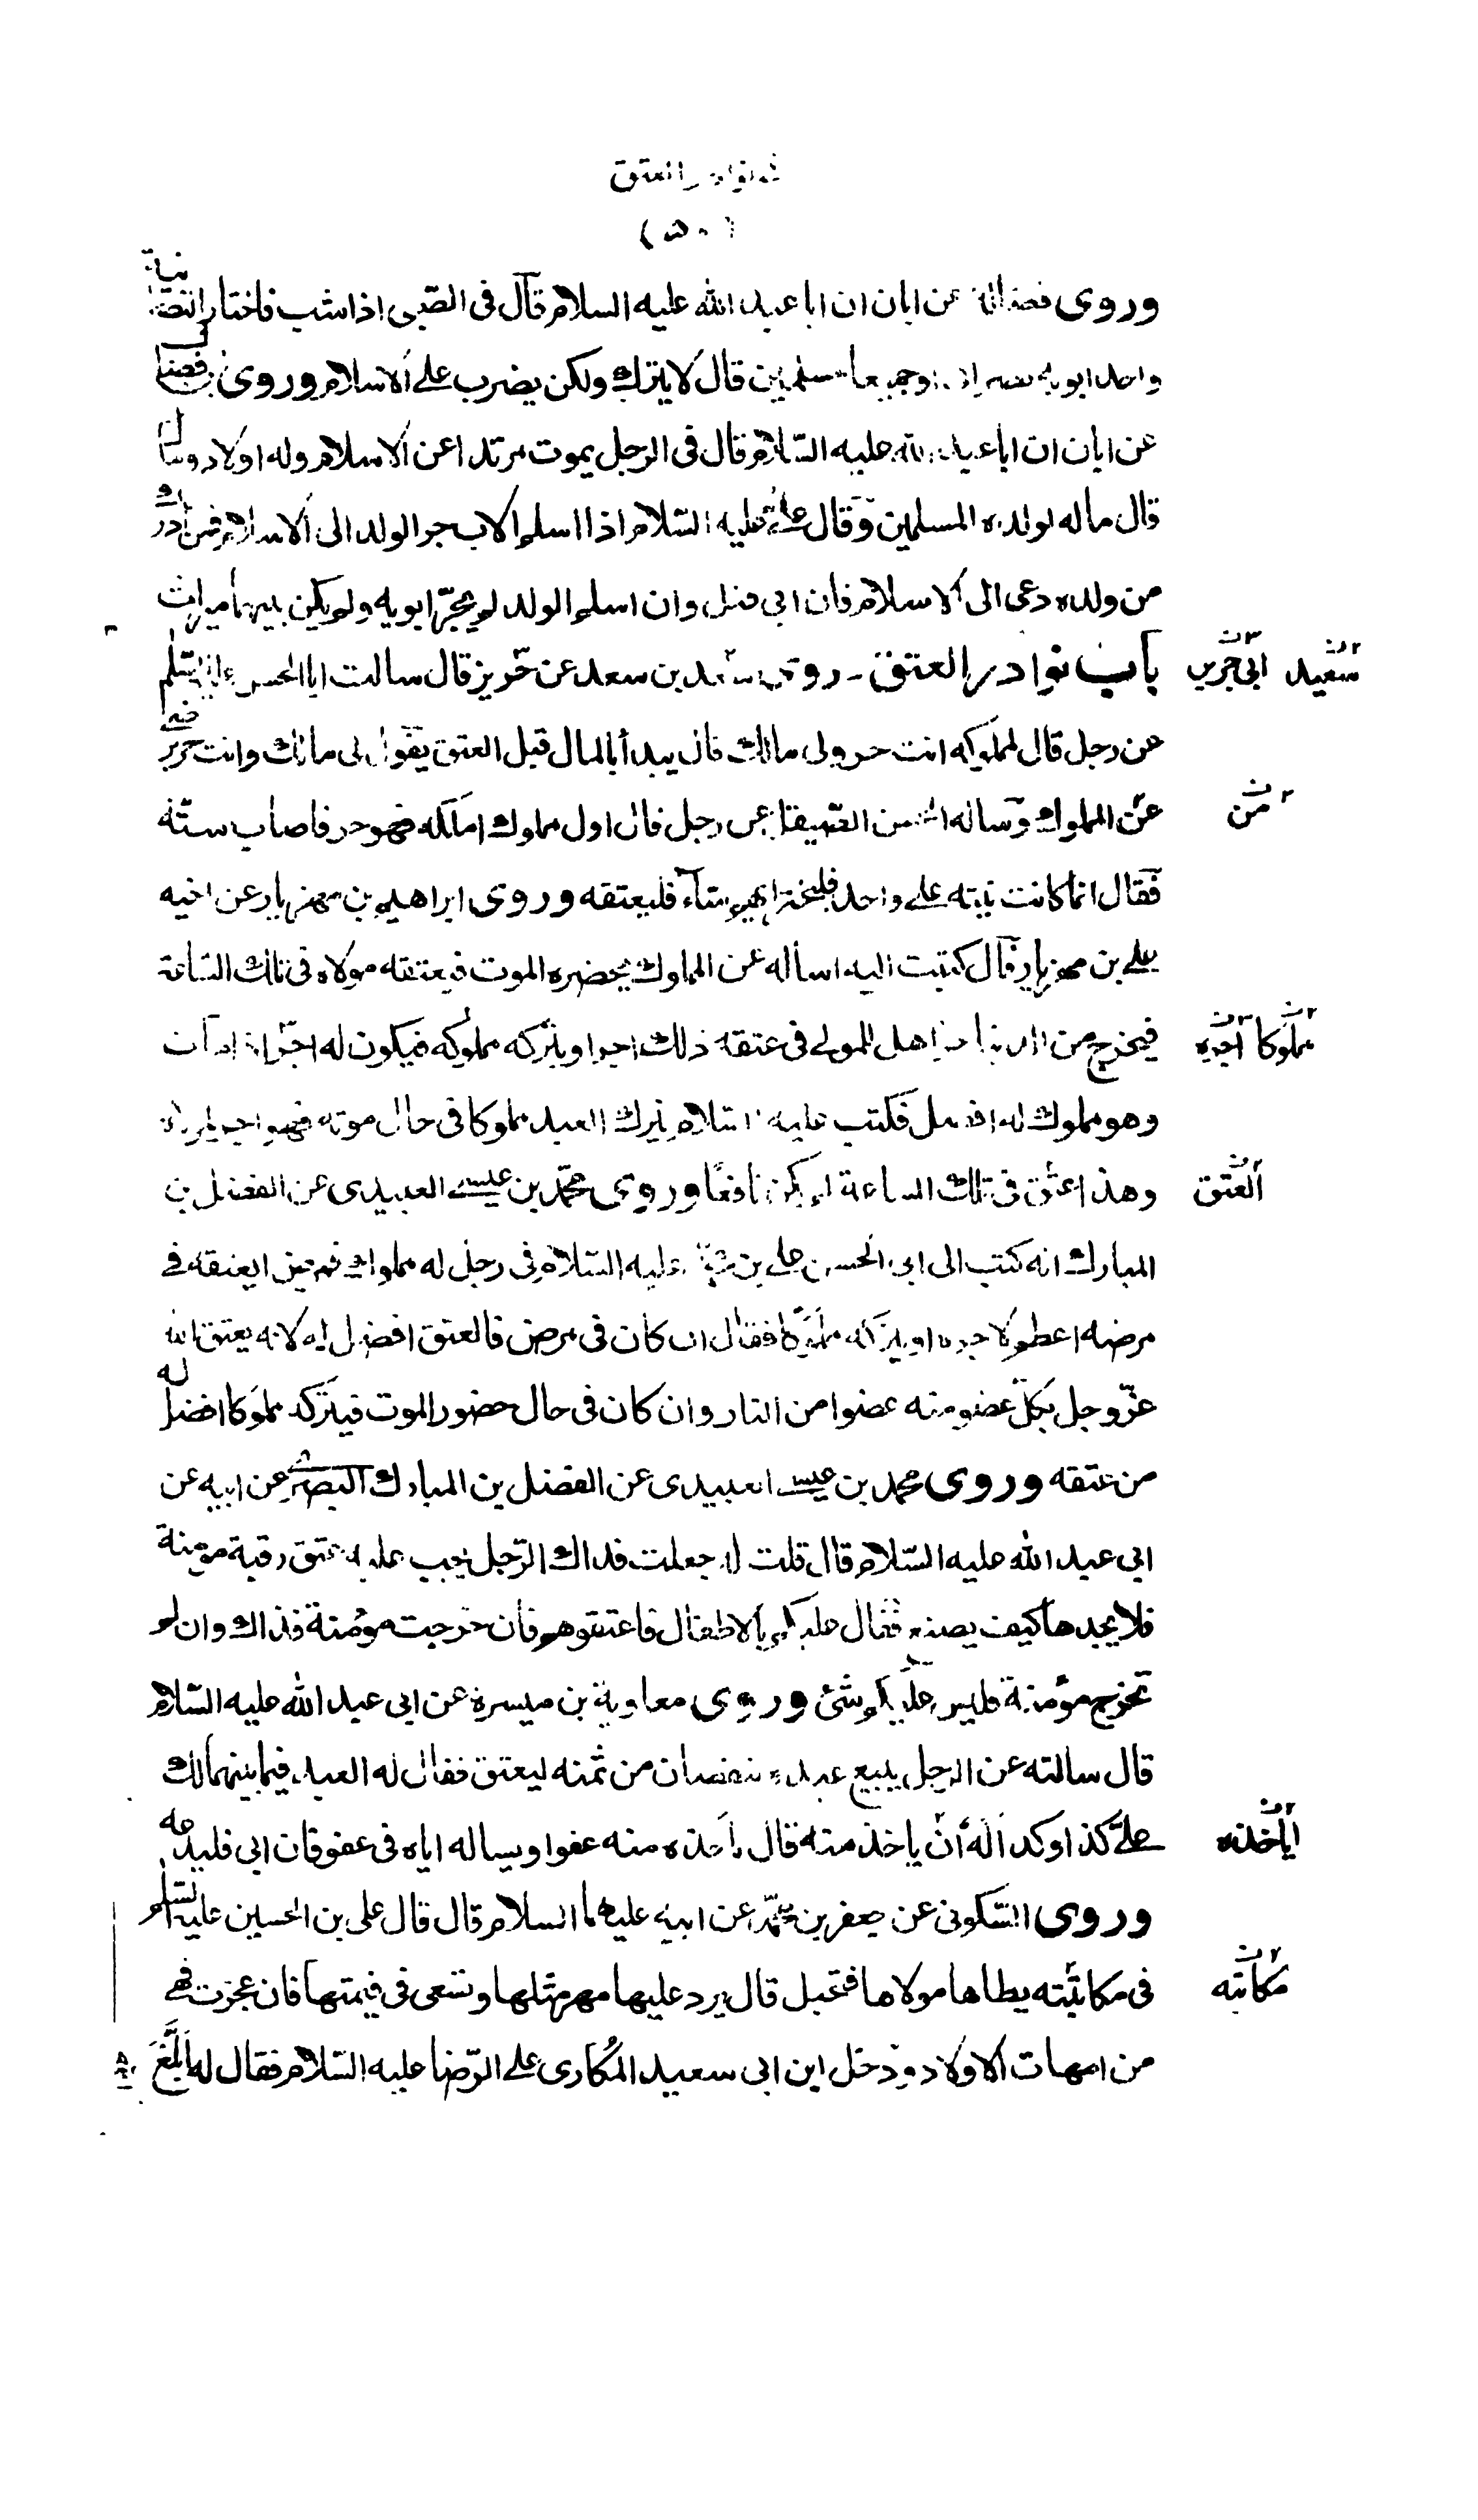 نوادر العتق
(٥٠)
وروى فضالة عن ابان ان ابا عبد الله عليه السلام قال فى الصّبى اذا شب فاختار النصرانية
واحد ابويه نصرانى او جميعا مسلمين قال لا يترك ولكن يضرب على الاسلام وروى فضالة
عن ابان ان ابا عبد الله عليه السّلام قال فى الرجل يموت مرتدا عن الاسلام وله اولاد ومال
قال ماله لولده المسلمين وقال علىّ عليه السّلام اذا اسلم الاب جر الولد الى الاسلام فمن ادرك
من ولده دعى الى الاسلام فان ابى قتل وان اسلم الولد لم يجرّ ابويه ولم يكن بينهما ميراث
باب نوادر العتق ـ روى سعد بن سعد عن حريز قال سالت ابا الحسن عليه السّلم
سعيد ابى جرير
عن رجل قال لمملوكه انت حر ولى مالك قال يبدأ بالمال قبل العتق يقول لى مالك وانت حر برضى
عن المملوك وسأله الحسن الصّيقل عن رجل قال اول مملوك املكه فهو حر فاصاب ستّة
من
فقال انما كانت نيّته على واحد فليختر ايهم شآء فليعتقه وروى ابراهيم بن مهزيار عن اخيه
على بن مهزيار قال كتبت اليه اسأله عن المملوك يحضره الموت فيعتقه مولاه فى تلك السّاعة
فيخرج من الدنيا حرا هل للمولى فى عتقه ذلك اجر او يتركه مملوكه فيكون له اجر اذا مات
مملوكا اجره
وهو مملوك له افضل فكتب عليه السّلام يترك العبد مملوكا فى حال موته فهو اجر لمولاه
وهذا عتق فى تلك الساعة لم يكن نافعًا وروى محمّد بن عيسى العبيدى عن الفضل بن
العتق
المبارك انه كتب الى ابى الحسن على بن محمّد عليه السّلام فى رجل له مملوك فمرض ايعتقه فى
مرضه اعظم لاجره او يتركه مملوكا فقال ان كان فى مرض فالعتق افضل له لانه يعتق الله
عزّ وجل بكلّ عضو منه عضوا من النار وان كان فى حال حضور الموت فيتركه مملوكا افضل له
من عتقه وروى محمد بن عيسى العبيدى عن الفضل بن المبارك البصرى عن ابيه عن
ابى عبد الله عليه السّلام قال قلت له جعلت فداك الرّجل يجب عليه عتق رقبة مومنة
فلا يجدها كيف يصنع فقال عليكم بالاطفال فاعتقوهم فان خرجت مؤمنة فذاك وان لم
تخرج مؤمنة فليس عليكم شئ وروى معاوية بن ميسرة عن ابى عبد الله عليه السّلام
قال سالته عن الرجل يبيع عبده بنقصان من ثمنه ليعتق فقال له العبد فيما بينهما لك
علىّ كذا وكذا أله أن ياخذ منه قال ياخذه منه عفوا ويساله اياه فى عفو فان ابى فليدعه
اياخذه
وروى السّكونى عن جعفر بن محمّد عن ابيه عليهما السلام قال قال على بن الحسين عليه السّلم
فى مكاتبته يطاها مولاها فتحبل قال يرد عليها مهر مثلها وتسعى فى قيمتها فان عجزت فهى
مكاتبه
من امهات الاولاد ودخل ابن ابى سعيد المُكارى على الرّضا عليه السّلام فقال له ابلَّغَ